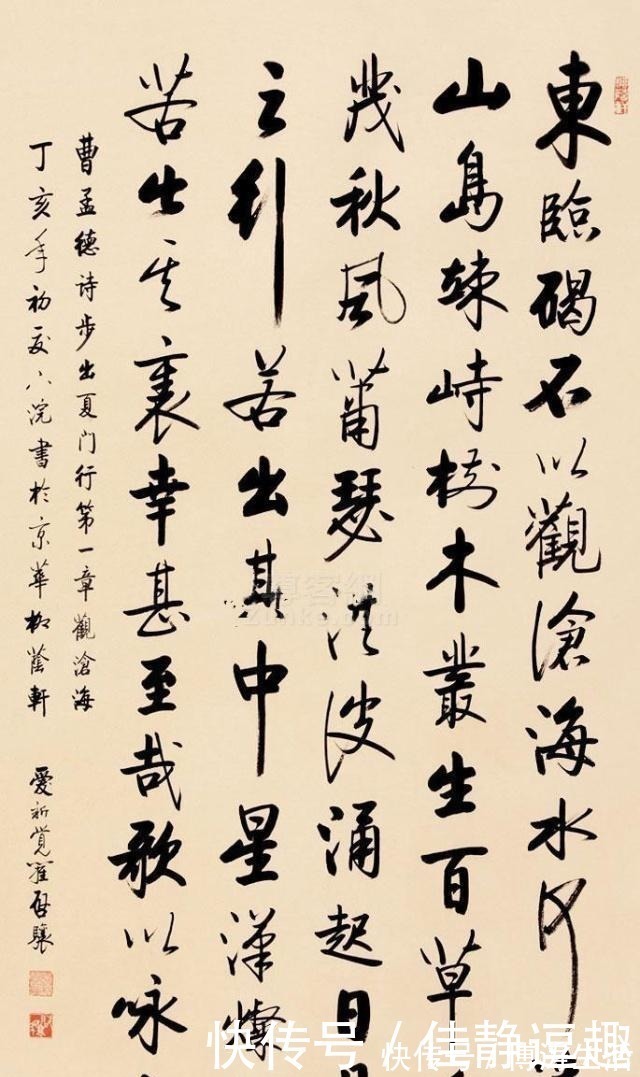 東臨碣石以觀滄海水何
山島竦峙樹木叢生百草
茂秋風蕭瑟洪波涌起日
之行若出其中星漢燦
若出其裏幸甚至哉歌以咏
曹孟德诗步出夏门行第一章觀滄海
丁亥年初夏浣書於京華蔭軒
愛新覺羅啓驤
尊客網
zunke.com
快传号 / 佳静逗趣
快传号